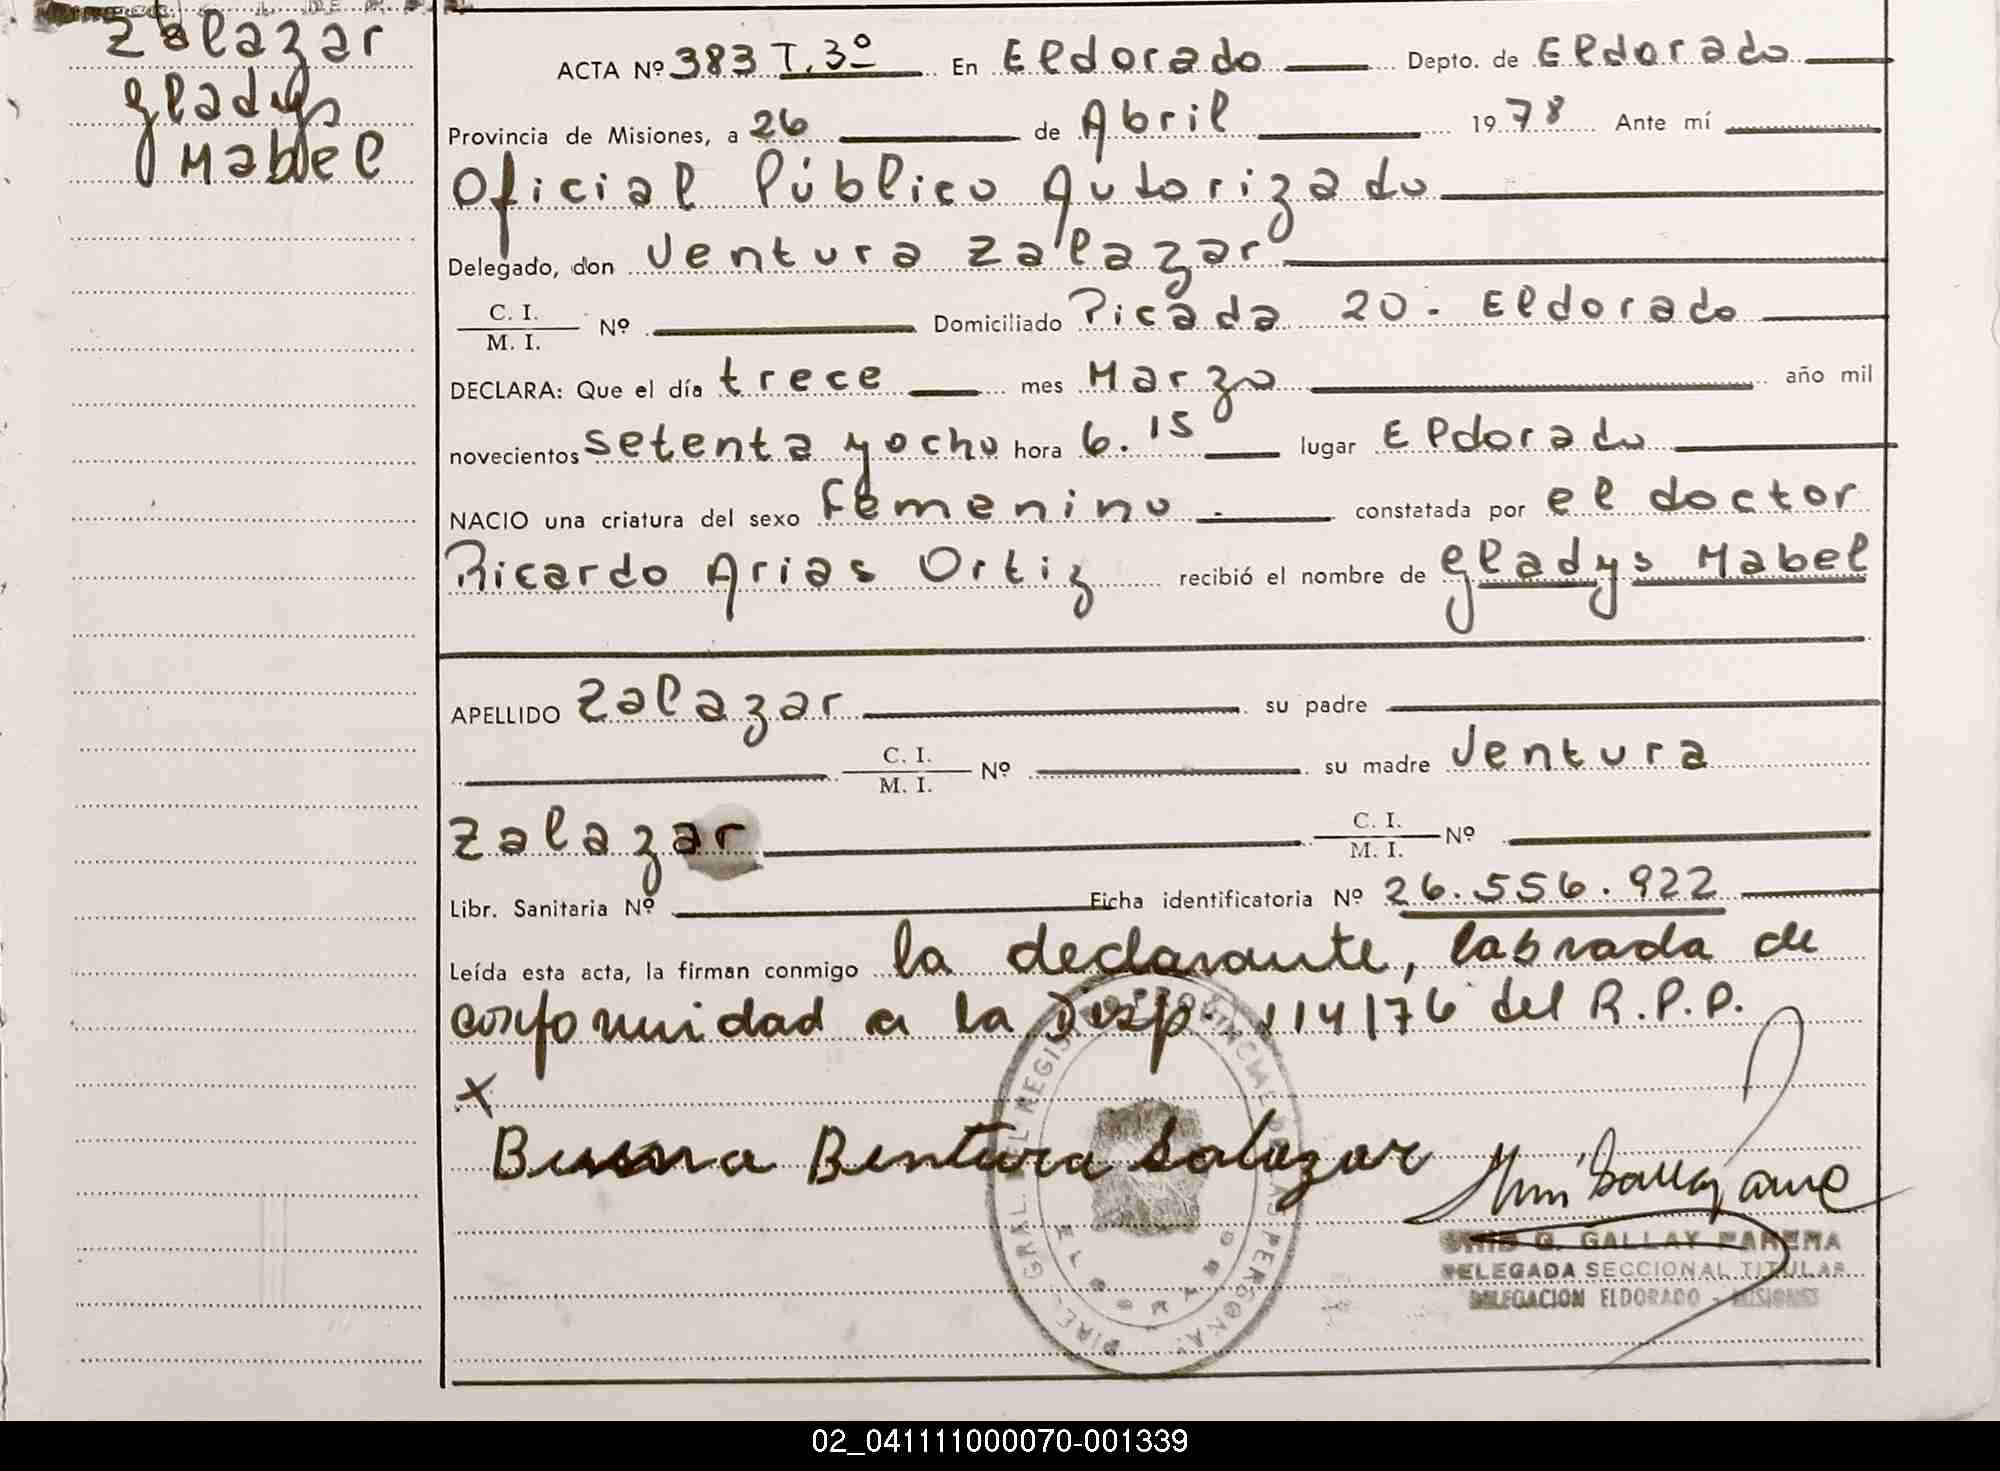 Zalazar
Gladys
Mabel
ACTA Nº 383 T. 3º En Eldorado Depto. de Eldorado
Provincia de Misiones, a 26 de Abril 1978 Ante mí
Oficial Público Autorizado
Delegado, don Ventura Zalazar
C. I.
M. I. Nº Domiciliado Picada 20 - Eldorado
DECLARA: Que el día trece mes Marzo año mil
novecientos setenta y ocho hora 6.15 lugar Eldorado
NACIO una criatura del sexo Femenino constatada por el doctor
Ricardo Arias Ortiz recibió el nombre de Gladys Mabel
APELLIDO Zalazar su padre
C. I.
M. I. Nº su madre Ventura
Zalazar C. I.
M. I. Nº
Libr. Sanitaria Nº Ficha identificatoria Nº 26.556.922
Leída esta acta, la firman conmigo la declarante, labrada de
conformidad a la Disp. 114/76 del R.P.P.
X
Buena Bentura Salazar
G. GALLAY
DELEGADA SECCIONAL TITULAR
DELEGACION ELDORADO - MISIONES
02_041111000070-001339